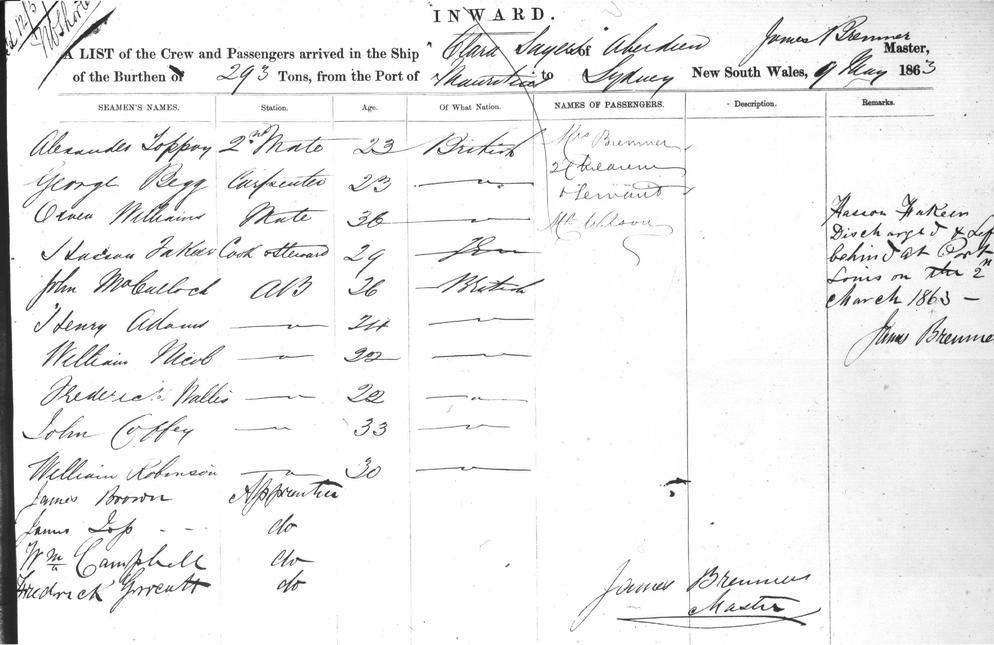 INWARD.
A LIST of the Crew and Passengers arrived in the Ship "Clara Sayers of Aberdeen James Bremner Master,
of the Burthen of 293 Tons, from the Port of Mauritius to Sydney New South Wales, 9 May 1863
SEAMEN'S NAMES. Station. Age. Of What Nation. NAMES OF PASSENGERS. Description. Remarks.
Alexander 2nd Mate 23 British Mrs Bremner
George Begg Carpenter 23 — " — 2 Children
Owen Williams Mate 36 — " — & Servant
Mr Wilson
Cook & Steward 29
John McCulloch AB 26 British
Henry Adams — " — 24 — " —
William Nicol — " — 22 — " —
Frederick Wallis — " — 22 — " —
John Coffey — " — 33 — " —
William Robinson — " — 30 — " —
James Brown Apprentice
James do
Wm Campbell do
Fredrick do
Hasson Hakeen
Discharged & Lef
behind at Port
Louis on the 2n
March 1863 —
James Bremne
James Bremner
Master